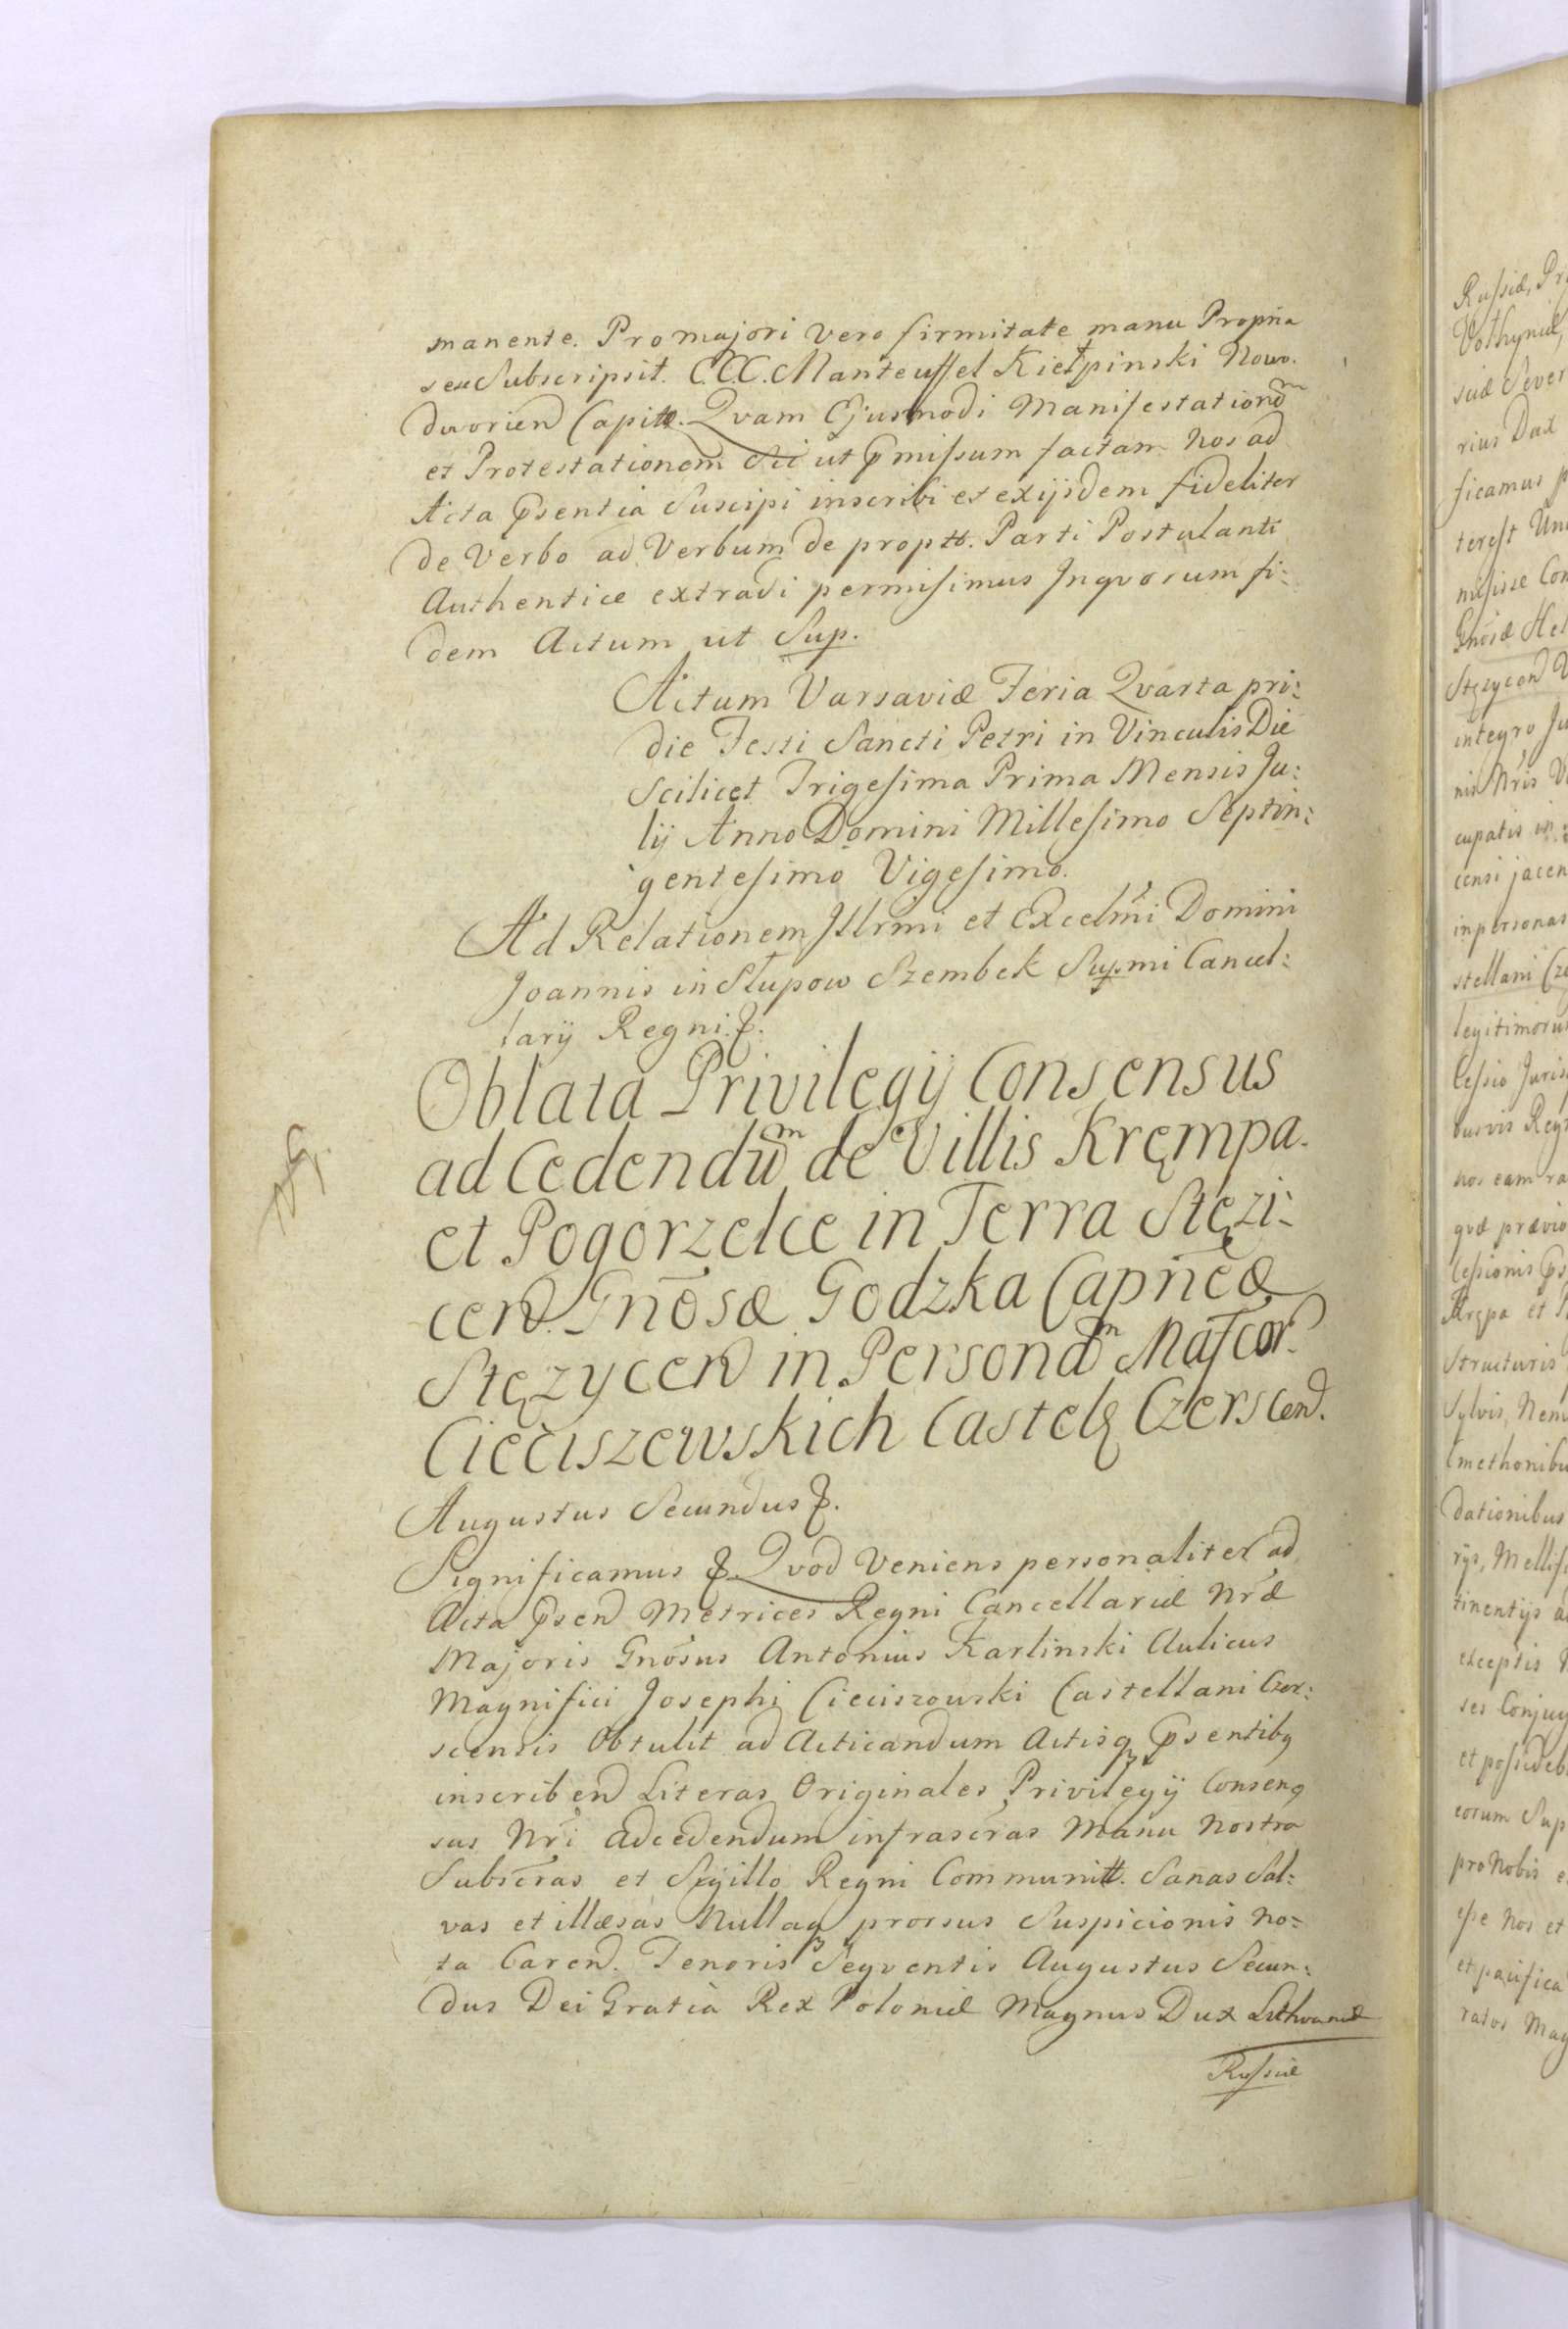 manente. Pro majori vero firmitate manu Propria
se Subscripsit. C.C.C. Manteuffel Kiełpinski Nowo.
dworien Capitt. Qvam Ejusmodi Manifestationem
et Protestationem Sic ut Pmissum factam Nos ad
Acta Psentia Suscipi inscribi et exijsdem fideliter
de Verbo ad Verbum de proptt. Parti Postulanti
Authentice extradi permisimus Inqvorum fi:
dem Actum ut Sup.
Actum Varsaviæ Feria Qvarta pri:
die Festi Sancti Petri in Vinculis Die
Scilicet Trigesima Prima Mensis Ju:
lij Anno Domini Millesimo Septin:
gentesimo Vigesimo.
Ad Relationem Illrmi et Excelmi Domini
Joannis in Słupow Szembek Supmi Cancel:
larij Regni.
Oblata Privilegij Consensus
ad Cedendum de Villis Krempa.
et Pogorzelce in Terra Stęzi:
cen. Gnosæ Godzka Capneæ
Stęzycen in Personam Mafcor.
Cieciszewskich Castel Czerscen.
Augustus Secundus
Significamus Qvod Veniens personaliter ad
Acta Psen Metrices Regni Cancellariæ Nræ
Majoris Gnosus Antonius Karlinski Aulicus
Magnifici Josephi Cieciszowski Castellani Czer:
scensis Obtulit ad Acticandum Actisq Psentibq
inscriben Literas Originales Privilegij Consenq
sus Nri adcedendum infrascras Manu Nostra
Subscras et Sigillo Regni Communitt. Sanas Sal:
vas et illæsas Nullaq prorsus Suspicionis no:
ta Caren. Tenoris Seqventis Augustus Secun:
dus Dei Gratia Rex Poloniæ Magnus Dux Lithvaniæ
Russiæ
Russiæ,
Vothyniæ,
rius Dux
ficamus
terest
misisse
Stęzycen
integro
cupatis in
censi jacen
inpersonas
stellani
legitimorum
Cessio Juris
nos eam
qvæ prævio
Cessionis
Structuris
Sylvis,
Cmethonibus
dationibus
tinentijs
exceptis
eorum
proNobis
esse Nos et
et pacifica